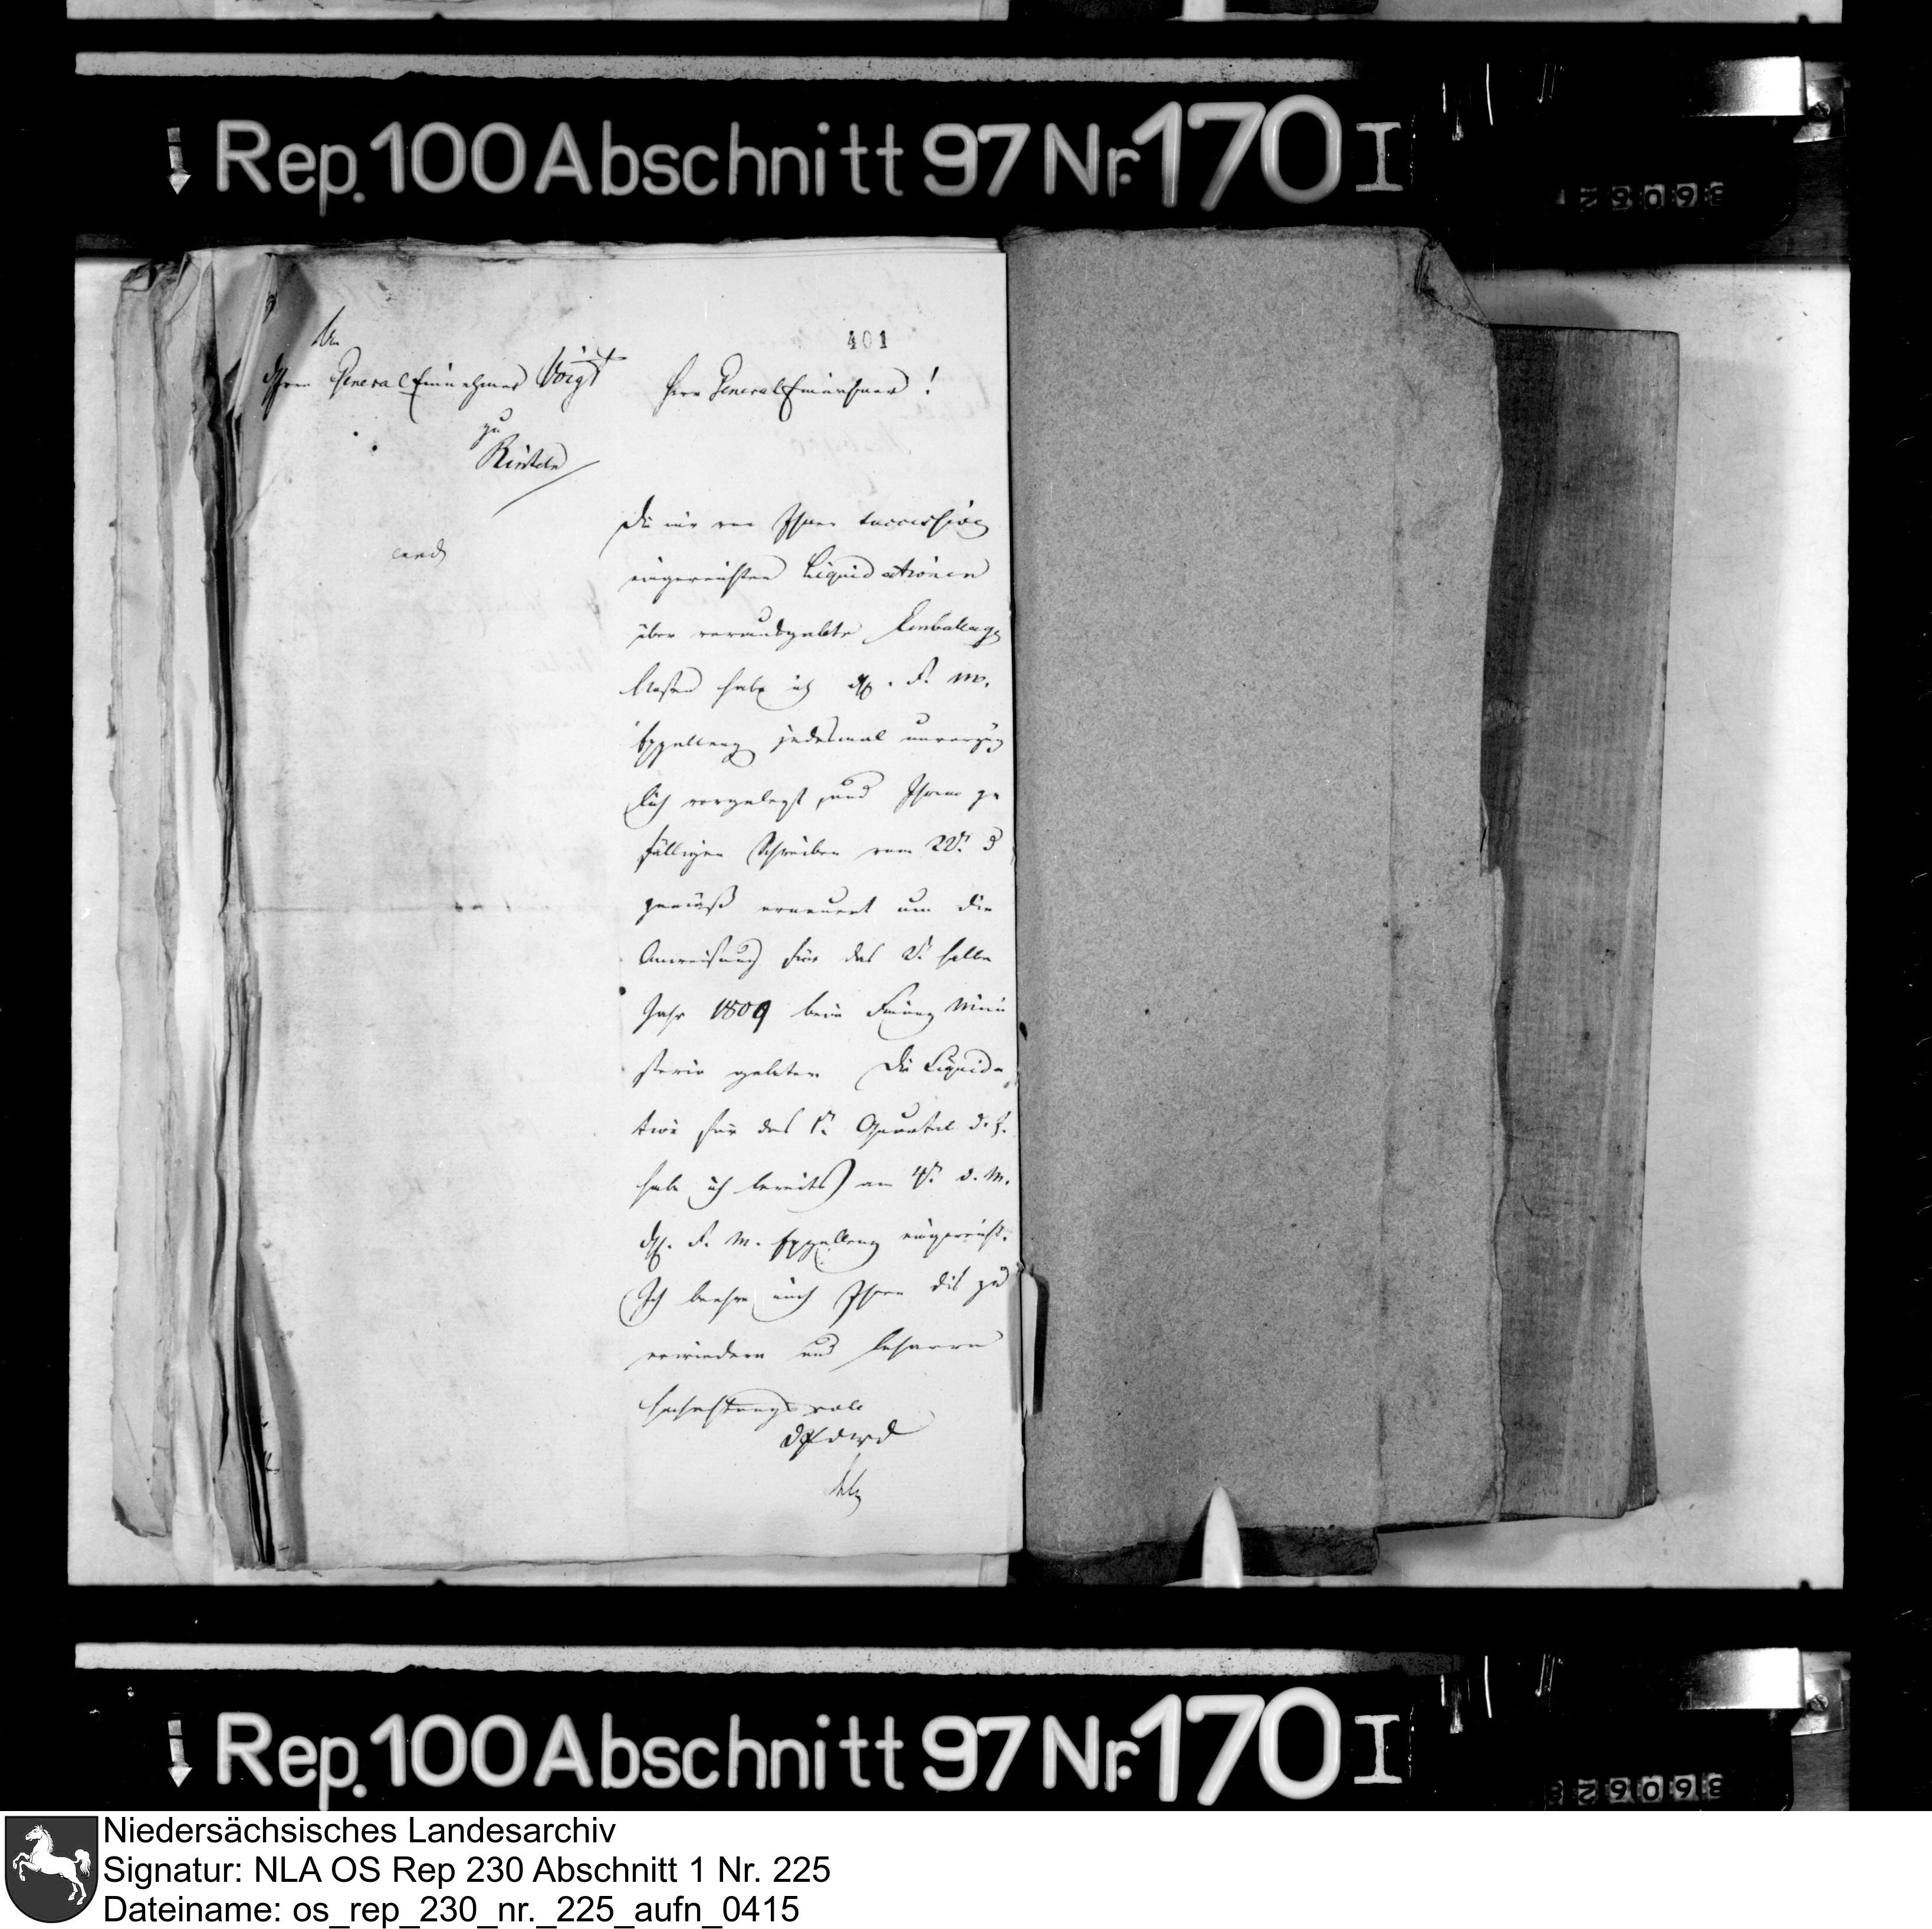 Rep. 100 Abschnitt 97 Nr. 170 I
36062
401
An
Herrn General Einnehmer Voigt
zu
Rinteln
cand
Herr General Einnehmer!
Die mir von Ihnen successive
eingereichten Liquidationen
über verausgabte Emballage
Kosten habe ich Sr. F. M.
Excellenz jedesmal unverzüg
lich vorgelegt, und Ihrem ge
fälligen Schreiben vom 22t. d
gemäß erneuert um die
Anweisung für das 2t. halbe
Jahr 1809 beim Finanz Mini
sterio gebeten. Die Liquida
tion für das 1t. Quartal d. J.
habe ich bereits am 4t. d. M.
Sr. F. M. Excellenz eingereicht.
Ich beehre mich Ihnen dis zu
erwiedern und beharre
hochachtungsvoll
Rep. 100 Abschnitt 97 Nr. 170 I
Niedersächsisches Landesarchiv
Signatur: NLA OS Rep 230 Abschnitt 1 Nr. 225
Dateiname: os_rep_230_nr._225_aufn_0415